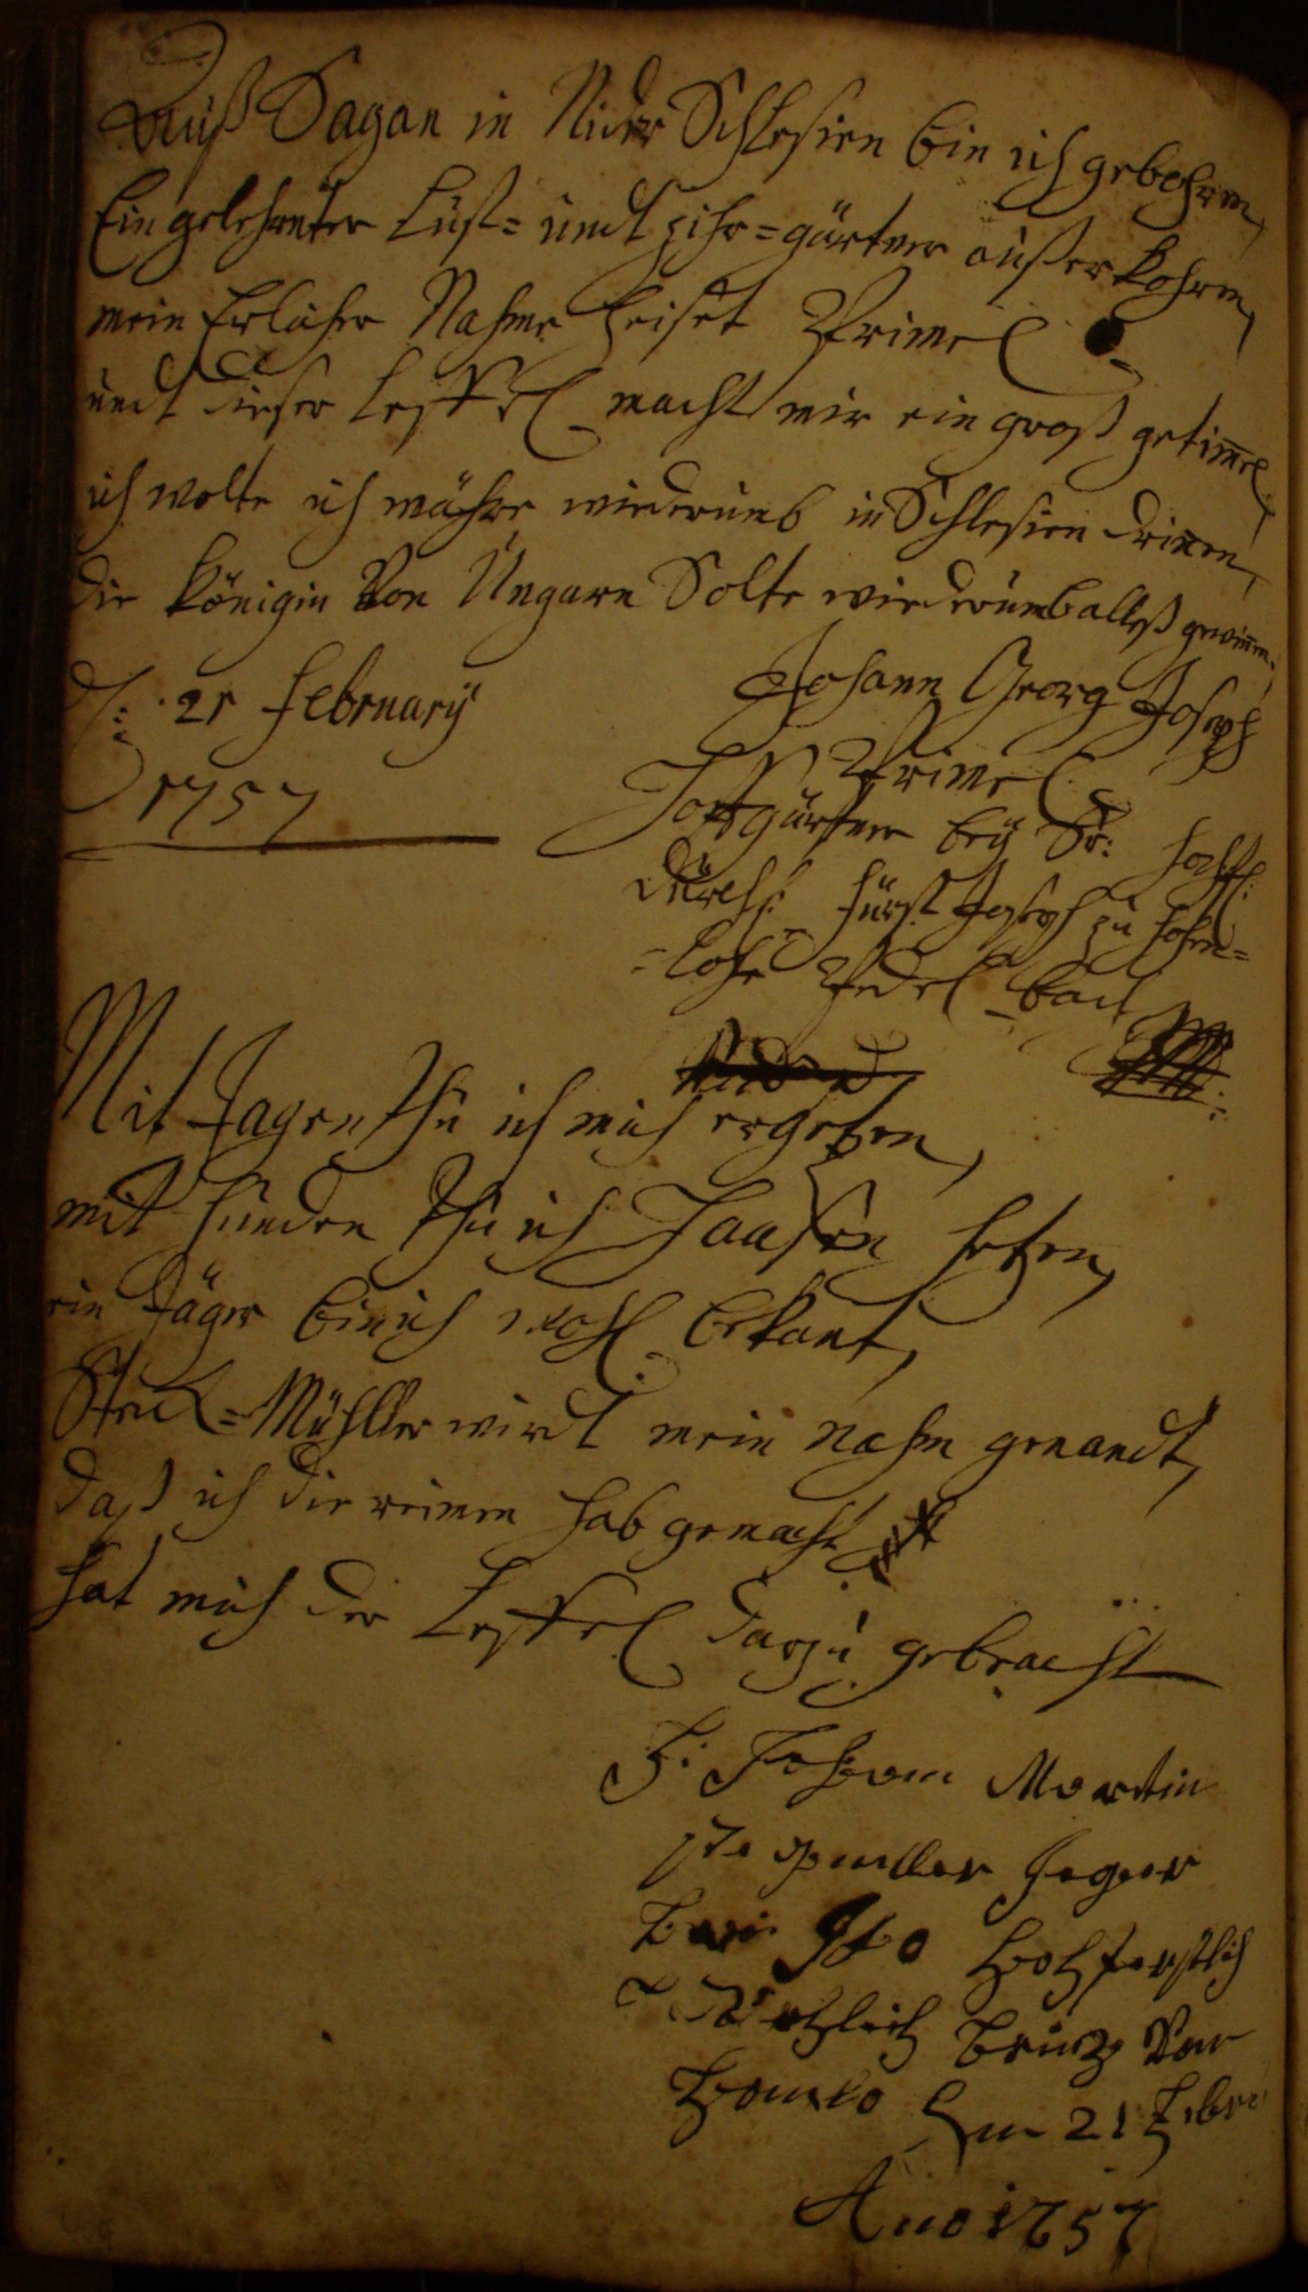 Auß Sagan in Nider Schlesien bin ich gebohren,
Ein gelehrnter Lust= undt zihr=gärtner außerkohren,
mein Ehrlicher Nahme heiset Primel
undt dieser Leffel macht mir ein groß getim̄el,
ich wolte ich währe wiederumb in Schlesien drinen,
die Königin Von Ungarn Solte wiederumb alleß gewin̄en.
d: 21 February
1757
Johann Georg Joseph
Primel
Hoffgärtner bey Sr: Hochfl:
Durchl: Fürst Joseph zu Hohen=
=lohe Pfedelbach
Mit Jagen thu ich mich ergetzen,
mit hunden thu ich Haasen hetzen,
ein Jäger bin ich wohl bekant,
Steck=Mühller wirdt mein nahm genandt,
daß ich die reimen hab gemacht
hat mich der Leffel darzu gebracht
Johann Martin
muller Jeger
bei Hochferstlich
Printz Von
den 21 Febr
Ano 1757